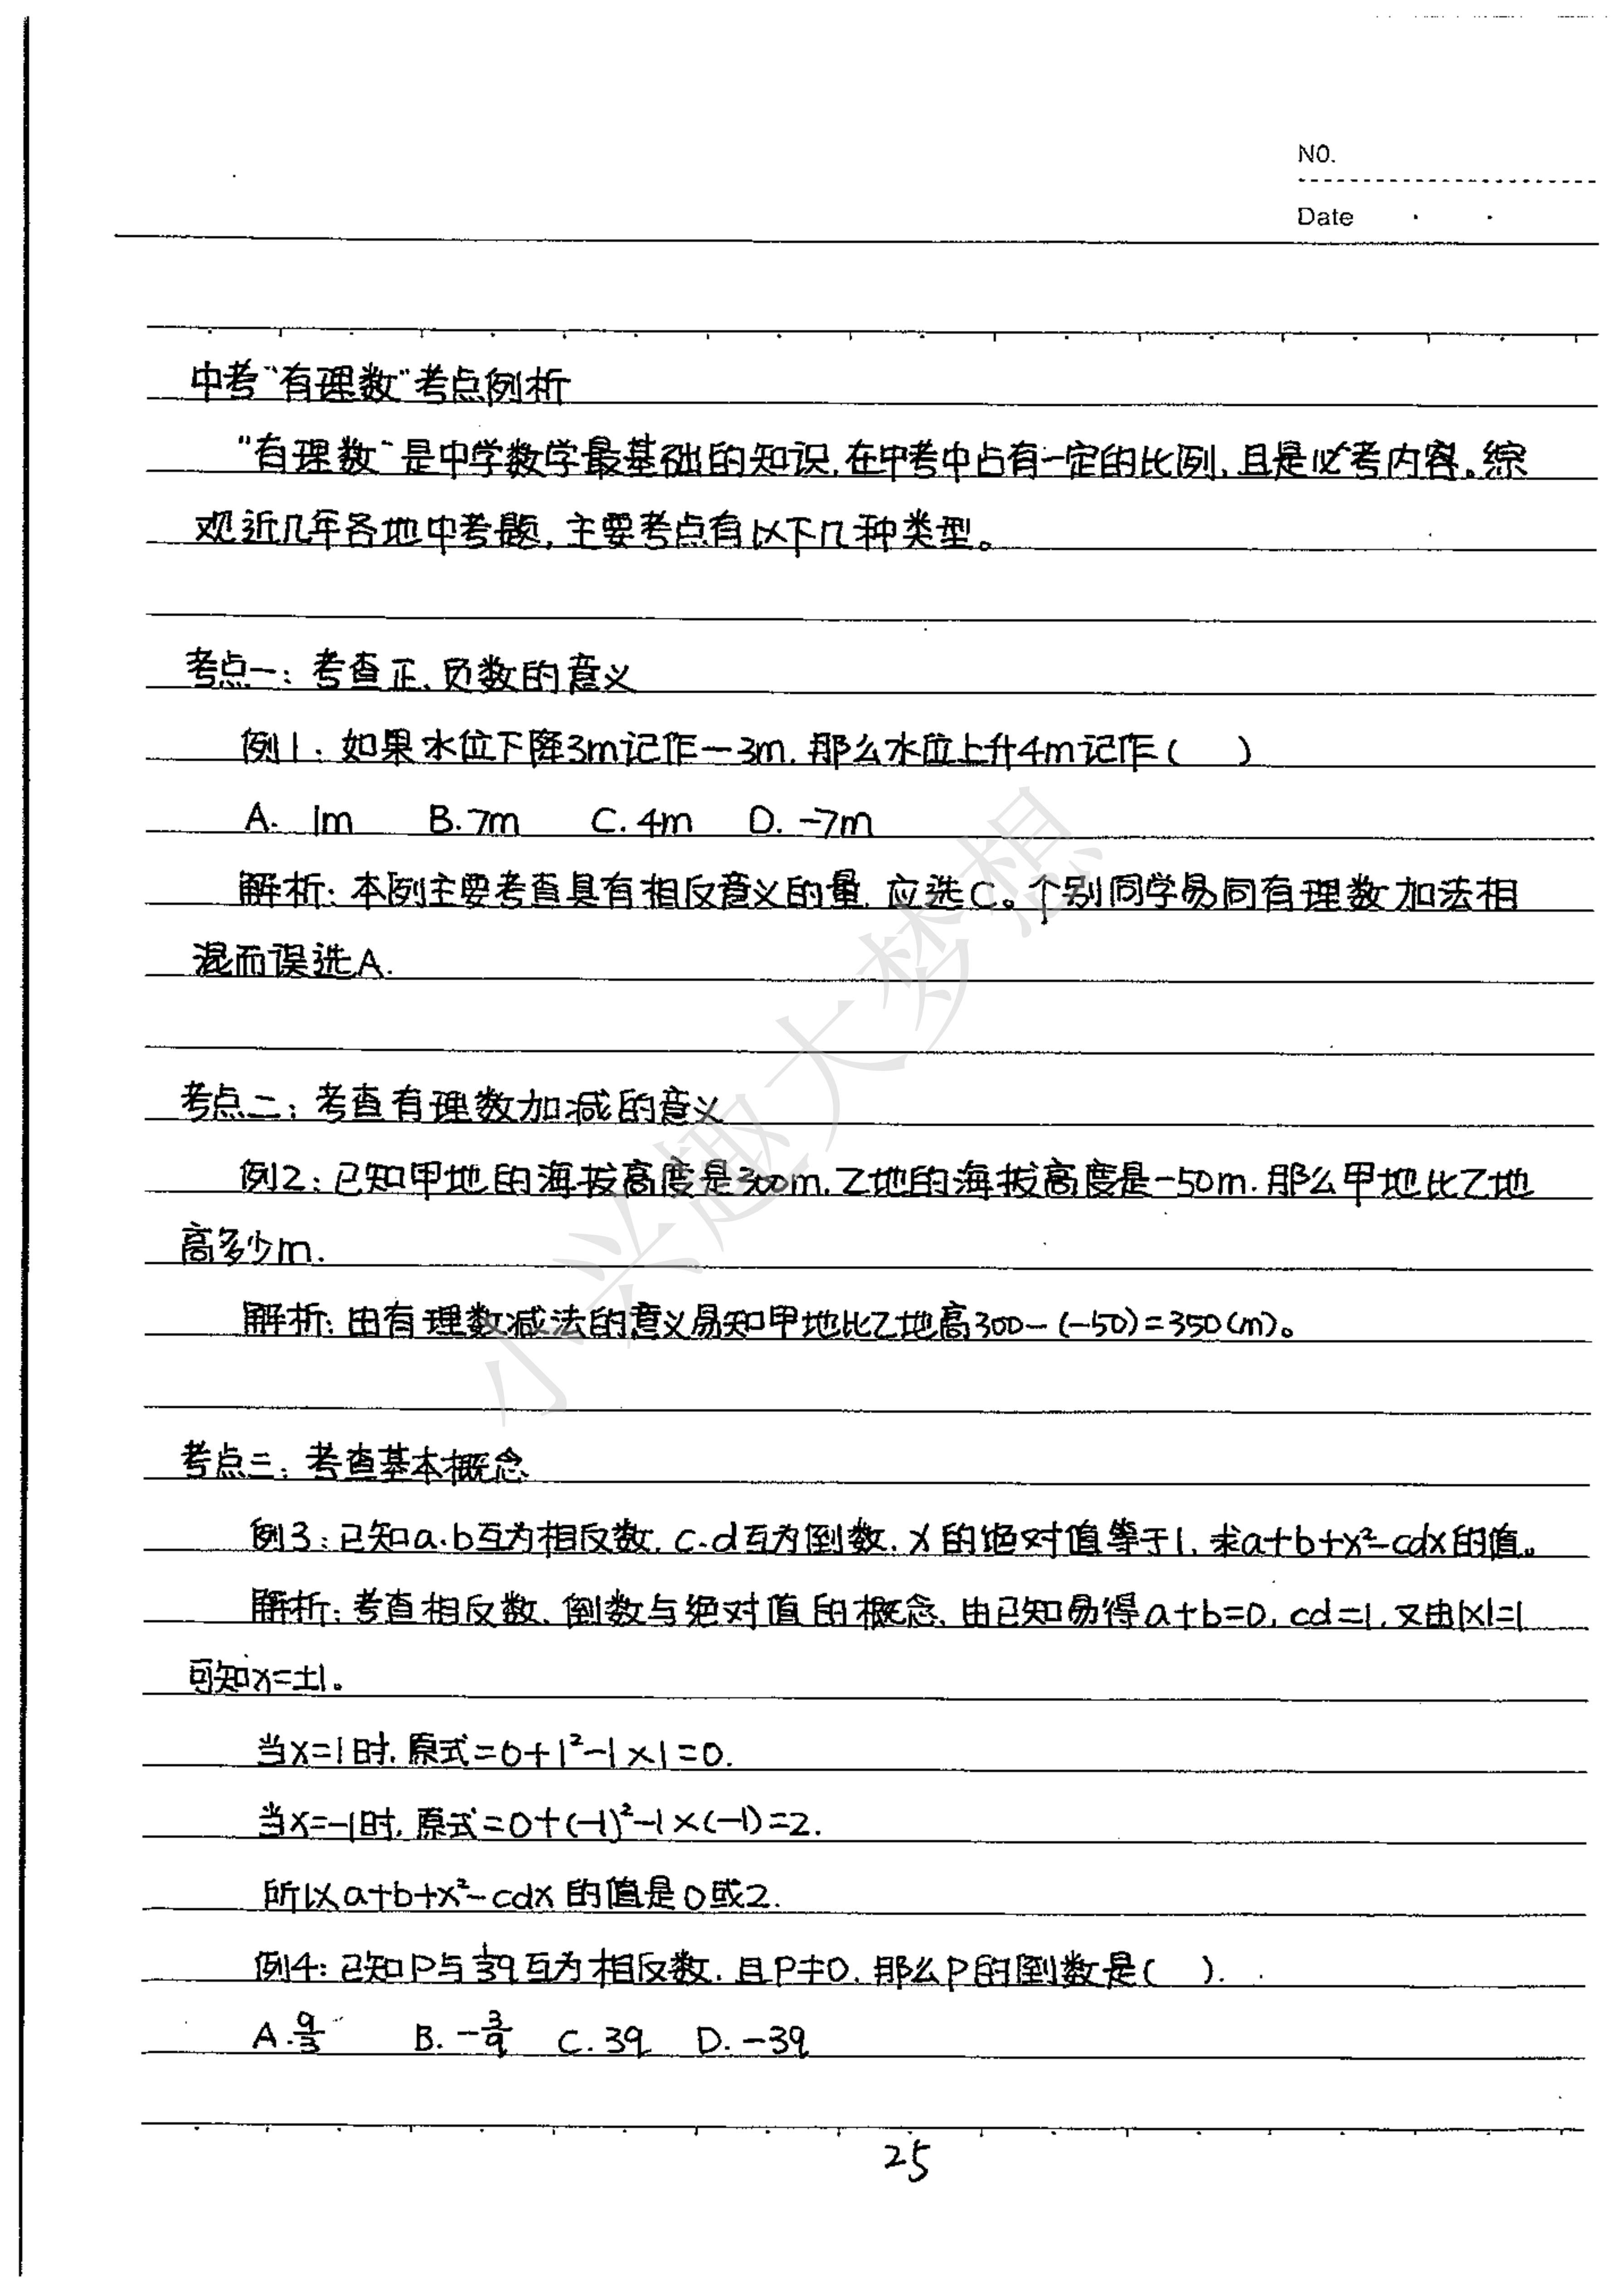 NO.
Date
中考“有理数”考点例析
“有理数”是中学数学最基础的知识,在中考中占有一定的比例,且是必考内容。综
观近几年各地中考题,主要考点有以下几种类型。
考点一:考查正、负数的意义
例1:如果水位下降3m记作-3m,那么水位上升4m记作( )
A. 1m B.7m C.4m D.-7m
解析:本例主要考查具有相反意义的量,应选C。个别同学易同有理数加法相
混而误选A.
考点二:考查有理数加减的意义
例2:已知甲地的海拔高度是300m,乙地的海拔高度是-50m.那么甲地比乙地
高多少m.
解析:由有理数减法的意义易知甲地比乙地高300-(-50)=350(m)。
考点三:考查基本概念
例3:已知a.b互为相反数,c.d互为倒数,x的绝对值等于1,求a+b+x²-cdx的值。
解析:考查相反数、倒数与绝对值的概念,由已知易得a+b=0,cd=1,又由|x|=1
可知x=±1。
当x=1时,原式=0+1²-1×1=0.
当x=-1时,原式=0+(-1)²-1×(-1)=2.
所以a+b+x²-cdx的值是0或2.
例4:已知P与1/39互为相反数,且P≠0,那么P的倒数是( ).
A.9/3 B.-3/9 C.39 D.-39
25
小兴趣大梦想